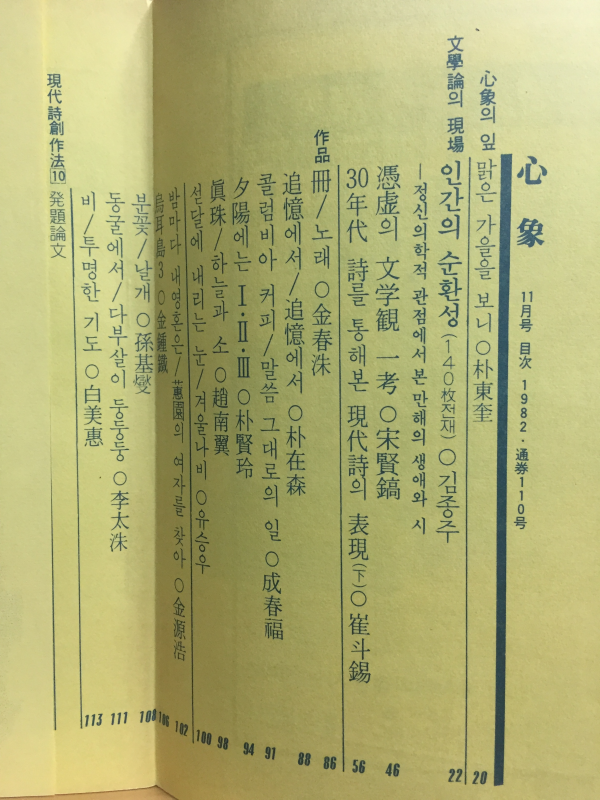 心象
11月号 目次 1982·通券110号
心象의 잎
맑은 가을을 보니 ○ 朴東奎 20
文學論의 現場
인간의 순환성(140枚전재) ○ 김종주 22
—정신의학적 관점에서 본 만해의 생애와 시
憑虛의 文学観 一考 ○ 宋賢鎬 46
30年代 詩를 통해본 現代詩의 表現(下) ○ 崔斗錫 56
作品
冊/노래 ○ 金春洙 86
追憶에서/追憶에서 ○ 朴在森 88
콜럼비아 커피/말씀 그대로의 일 ○ 成春福 91
夕陽에는 I·II·III ○ 朴賢玲 94
眞珠/하늘과 소 ○ 趙南翼 98
섣달에 내리는 눈/겨울나비 ○ 유승우 100
밤마다 내영혼은/蕙園의 여자를 찾아 ○ 金源浩 102
烏耳島3 ○ 金鍾鐵 106
분꽃/날개 ○ 孫基燮 108
동굴에서/다부살이 둥둥둥 ○ 李太洙 111
비/투명한 기도 ○ 白美惠 113
現代詩創作法10 発題論文